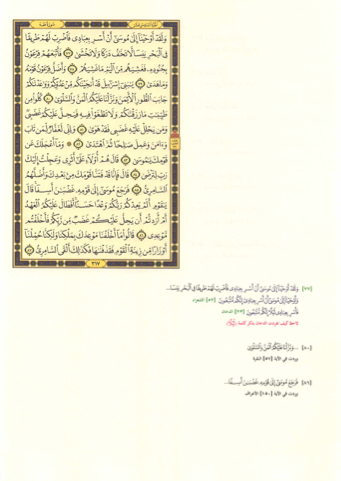 وَلَقَدْ أَوْحَيْنَا إِلَىٰ مُوسَىٰ أَنْ أَسْرِ بِعِبَادِي فَاضْرِبْ لَهُمْ طَرِيقًا
فِي الْبَحْرِ يَبَسًا لَا تَخَافُ دَرَكًا وَلَا تَخْشَىٰ ٧٧ فَأَتْبَعَهُمْ فِرْعَوْنُ
بِجُنُودِهِ فَغَشِيَهُمْ مِنَ الْيَمِّ مَا غَشِيَهُمْ ٧٨ وَأَضَلَّ فِرْعَوْنُ قَوْمَهُ
وَمَا هَدَىٰ ٧٩ يَا بَنِي إِسْرَائِيلَ قَدْ أَنْجَيْنَاكُمْ مِنْ عَدُوِّكُمْ وَوَاعَدْنَاكُمْ
جَانِبَ الطُّورِ الْأَيْمَنَ وَنَزَّلْنَا عَلَيْكُمُ الْمَنَّ وَالسَّلْوَىٰ ٨٠ كُلُوا مِنْ
طَيِّبَاتِ مَا رَزَقْنَاكُمْ وَلَا تَطْغَوْا فِيهِ فَيَحِلَّ عَلَيْكُمْ غَضَبِي
وَمَنْ يَحْلِلْ عَلَيْهِ غَضَبِي فَقَدْ هَوَىٰ ٨١ وَإِنِّي لَغَفَّارٌ لِمَنْ تَابَ
وَآمَنَ وَعَمِلَ صَالِحًا ثُمَّ اهْتَدَىٰ ٨٢ وَمَا أَعْجَلَكَ عَنْ
قَوْمِكَ يَا مُوسَىٰ ٨٣ قَالَ هُمْ أُولَاءِ عَلَىٰ أَثَرِي وَعَجِلْتُ إِلَيْكَ
رَبِّ لِتَرْضَىٰ ٨٤ قَالَ فَإِنَّا قَدْ فَتَنَّا قَوْمَكَ مِنْ بَعْدِكَ وَأَضَلَّهُمُ
السَّامِرِيُّ ٨٥ فَرَجَعَ مُوسَىٰ إِلَىٰ قَوْمِهِ غَضْبَانَ أَسِفًا قَالَ
يَا قَوْمِ أَلَمْ يَعِدْكُمْ رَبُّكُمْ وَعْدًا حَسَنًا أَفَطَالَ عَلَيْكُمُ الْعَهْدُ
أَمْ أَرَدْتُمْ أَنْ يَحِلَّ عَلَيْكُمْ غَضَبٌ مِنْ رَبِّكُمْ فَأَخْلَفْتُمْ
مَوْعِدِي ٨٦ قَالُوا مَا أَخْلَفْنَا مَوْعِدَكَ بِمَلْكِنَا وَلَٰكِنَّا حُمِّلْنَا
أَوْزَارًا مِنْ زِينَةِ الْقَوْمِ فَقَذَفْنَاهَا فَكَذَٰلِكَ أَلْقَى السَّامِرِيُّ ٨٧
٣١٧
[٧٧] وَلَقَدْ أَوْحَيْنَا إِلَىٰ مُوسَىٰ أَنْ أَسْرِ بِعِبَادِي فَاضْرِبْ لَهُمْ طَرِيقًا فِي الْبَحْرِ يَبَسًا...
وَأَوْحَيْنَا إِلَىٰ مُوسَىٰ أَنْ أَسْرِ بِعِبَادِي إِنَّكُمْ مُتَّبَعُونَ [٥٢] الشعراء
فَأَسْرِ بِعِبَادِي لَيْلًا إِنَّكُمْ مُتَّبَعُونَ [٢٣] الدخان
[٨٠] ...وَنَزَّلْنَا عَلَيْكُمُ الْمَنَّ وَالسَّلْوَىٰ
وردت في الآية [٥٧] البقرة
[٨٦] فَرَجَعَ مُوسَىٰ إِلَىٰ قَوْمِهِ غَضْبَانَ أَسِفًا...
وردت في الآية [١٥٠] الأعراف